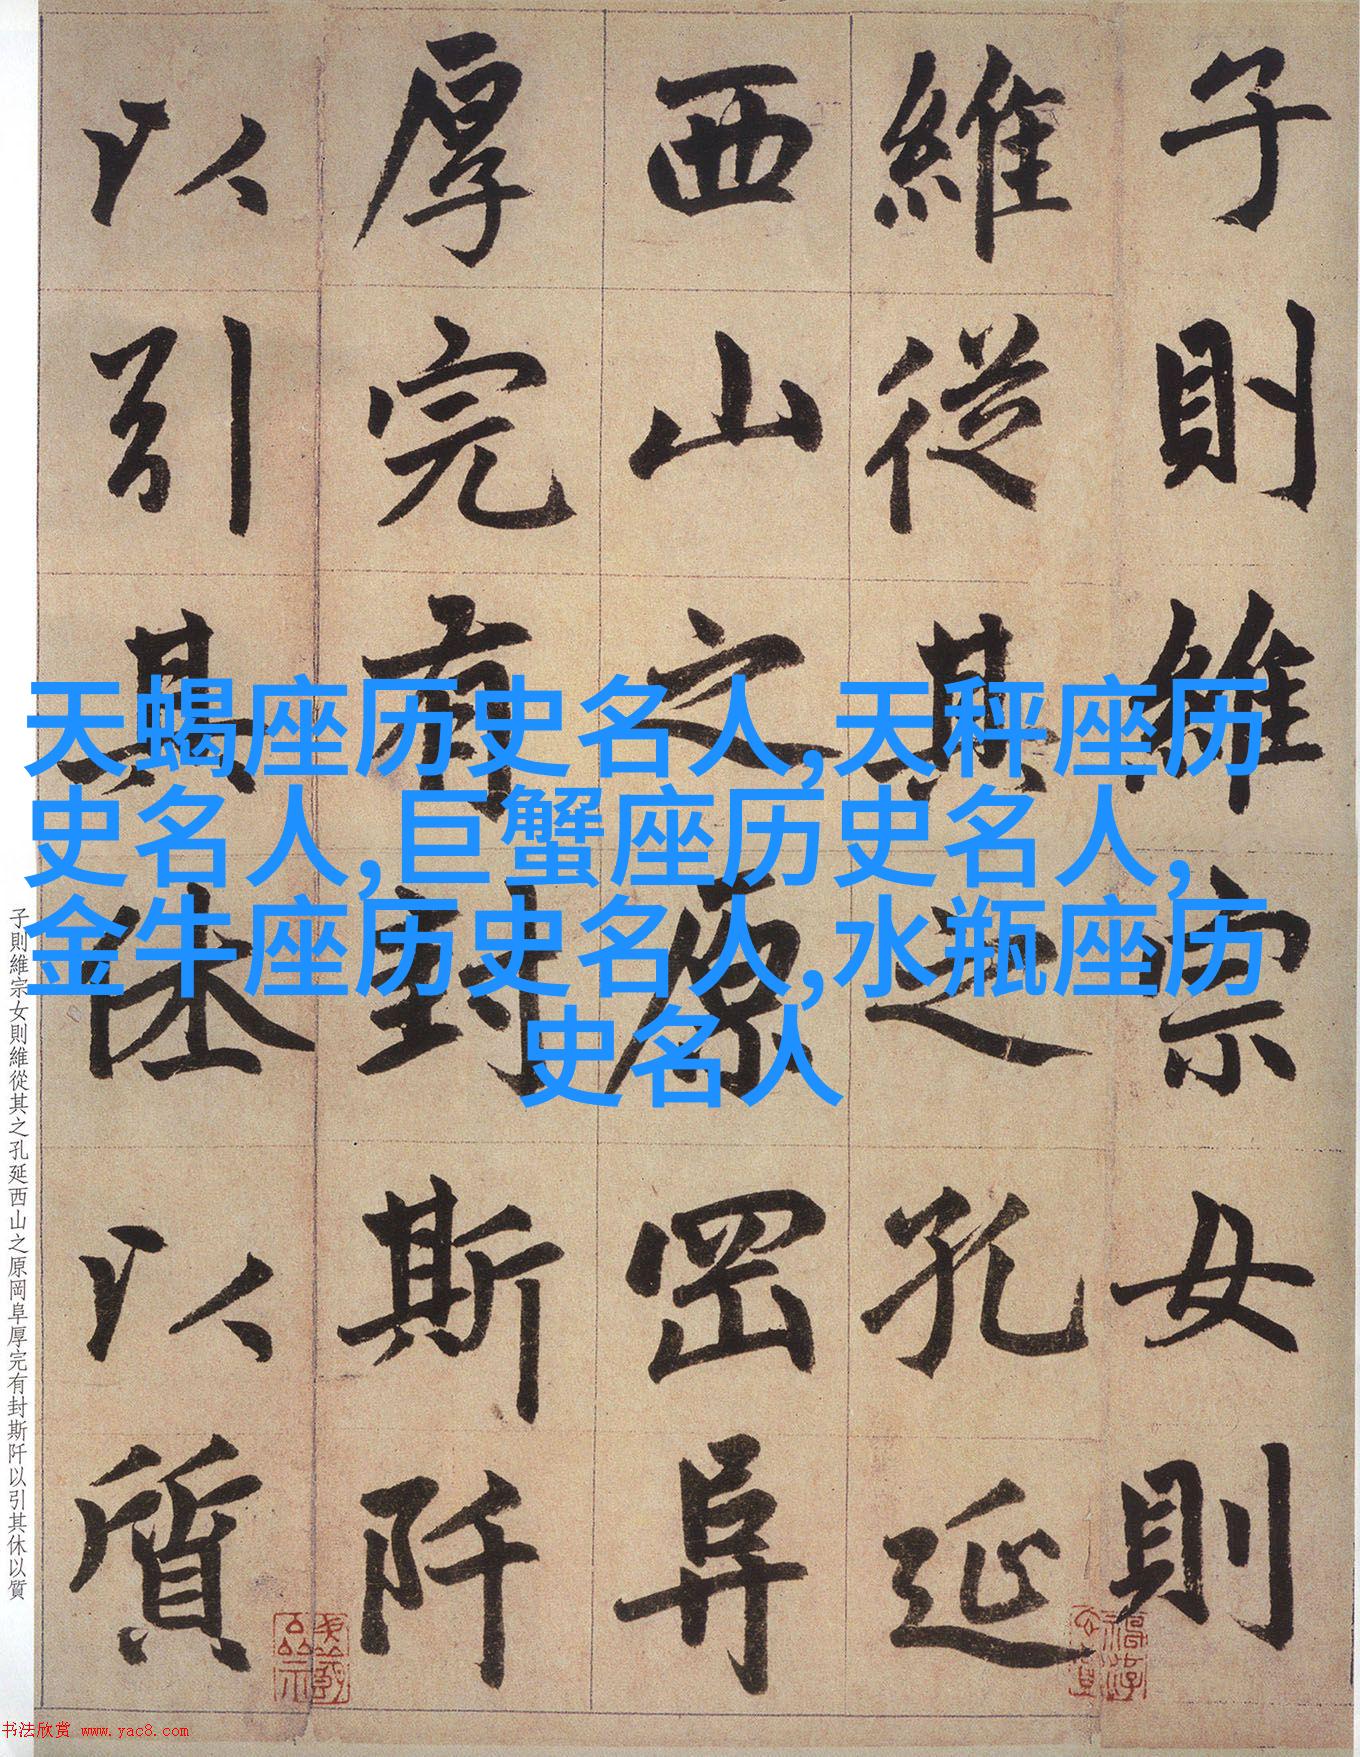 子則維宗女則
維從其之孔延
西山之原岡阜
厚完有封斯阡
以引其休以質
天蝎座历史名人,天秤座历
史名人,巨蟹座历史名人,
金牛座历史名人,水瓶座历
史名人
子則維宗女則維從其之孔延西山之原岡阜厚完有封斯阡以引其休以質
书法欣赏 www.yac8.com